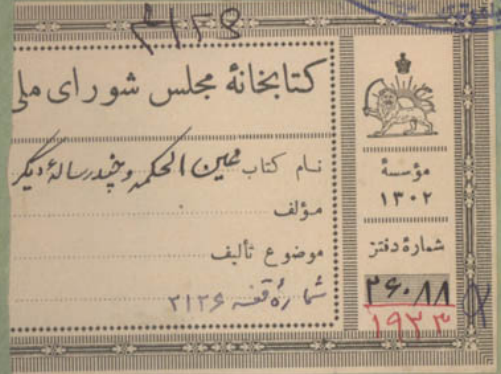 کتابخانهٔ مجلس شورای ملی
نام کتاب عین الحکمه و چند رسالهٔ دیگر
مؤلف
موضوع تألیف
شمارهٔ قفسه ۲۱۲۶
مؤسسهٔ
۱۳۰۲
شمارهٔ دفتر
۲۶۰۸۸
۱۹۲۳